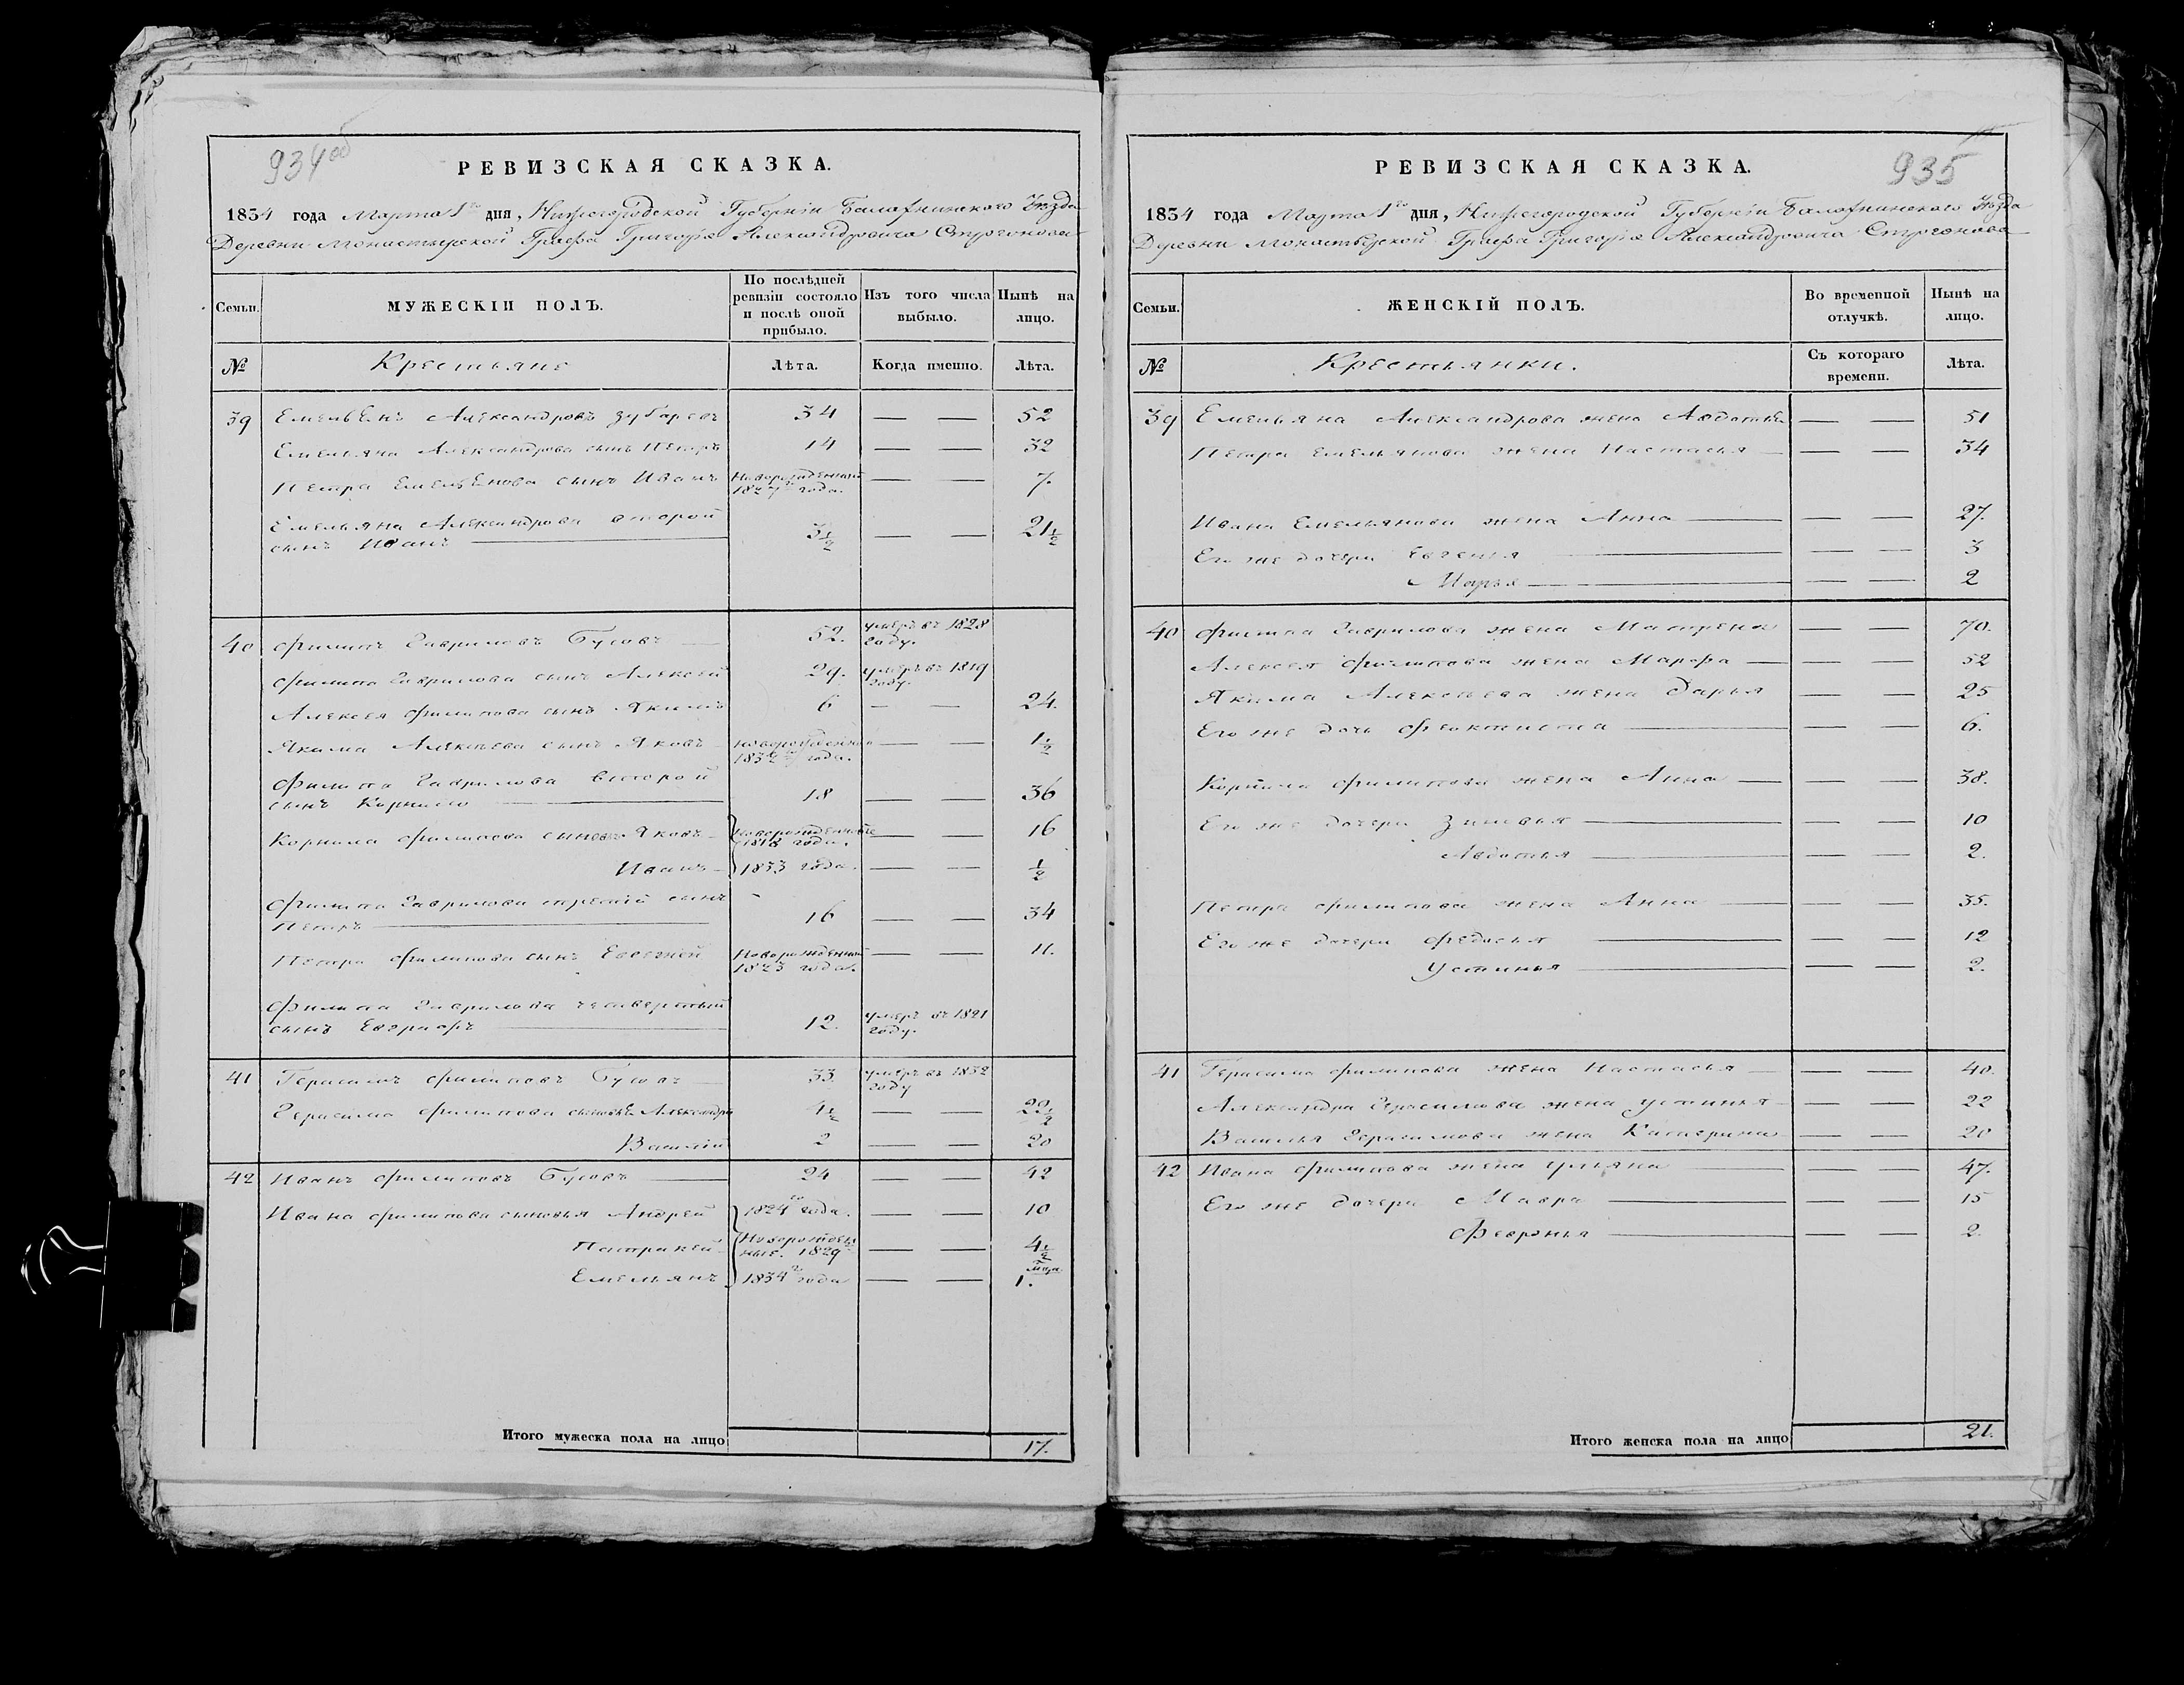 934об
РЕВИЗСКАЯ СКАЗКА.
1834 года Марта 1го дня, Нижегородской Губернии Балахнинского Уѣзда
Деревни Монастырской Графа Григорья Александровича Строгонова
Семьи.
МУЖЕСКІЙ ПОЛЪ.
По послѣдней ревизіи состояло и послѣ оной прибыло.
Изъ того числа выбыло.
Нынѣ на лицо.
№
Крестьяне
Лѣта.
Когда именно.
Лѣта.
39 Емельянъ Александровъ Зубаревъ 34 — — 52
Емельяна Александрова сынъ Петръ 14 — — 32
Петра Емельянова сынъ Иванъ Новорожденный 1827го года. — — 7.
Емельяна Александрова второй
сынъ Иванъ 3½ — — 21½
40 Филипъ Гавриловъ Бусовъ 52. умеръ въ 1828 году.
Филипа Гаврилова сынъ Алексей 29. умеръ въ 1819 году.
Алексея Филипова сынъ Якимъ 6 — — 24.
Якима Алексеева сынъ Яковъ новорожденный 1832го года. — — 1½
Филипа Гаврилова второй
сынъ Корнило 18 — — 36
Корнила Филипова сыновья Яковъ Новорожденные 1818 года. — — 16
Иванъ 1833 года. — — ½
Филипа Гаврилова третий сынъ
Петръ 16 — — 34
Петра Филипова сынъ Евсегней Новорожденный 1823 года. — — 11.
Филипа Гаврилова четвертый
сынъ Евграфъ 12. умеръ въ 1821 году.
41 Герасимъ Филиповъ Бусовъ 33. умеръ въ 1832 году
Герасима Филипова сыновья Александръ 4½ — — 22½
Василий 2 — — 20
42 Иванъ Филиповъ Бусовъ 24 — — 42
Ивана Филипова сыновья Андрей 1824го года. — — 10
Патрикей Новорожденные. 1829 — — 4½
Емельянъ 1834го года — — мца 1.
Итого мужеска пола на лицо 17.
935
РЕВИЗСКАЯ СКАЗКА.
1834 года Марта 1го дня, Нижегородской Губернии Балахнинского Уѣзда
Деревни Монастырской Графа Григорья Александровича Строгонова
Семьи.
ЖЕНСКІЙ ПОЛЪ.
Во временной отлучкѣ.
Нынѣ на лицо.
№
Крестьянки.
Съ котораго времени.
Лѣта.
39 Емельяна Александрова жена Авдотья — — 51
Петра Емельянова жена Настасья — — 34
Ивана Емельянова жена Анна — — 27.
Его же дочери Евгенья — — 3
Марья — — 2
40 Филипа Гаврилова жена Матрена — — 70.
Алексея Филипова жена Марфа — — 52
Якима Алексеева жена Дарья — — 25
Его же дочь Феоктиста — — 6.
Корнила Филипова жена Анна — — 38.
Его же дочери Зиновья — — 10
Авдотья — — 2.
Петра Филипова жена Анна — — 35.
Его же дочери Федосья — — 12
Устинья — — 2.
41 Герасима Филипова жена Настасья — — 40.
Александра Герасимова жена Устинья — — 22
Василья Герасимова жена Катерина — — 20
42 Ивана Филипова жена Ульяна — — 47.
Его же дочери Мавра — — 15
Февронья — — 2.
Итого женска пола на лицо 21.